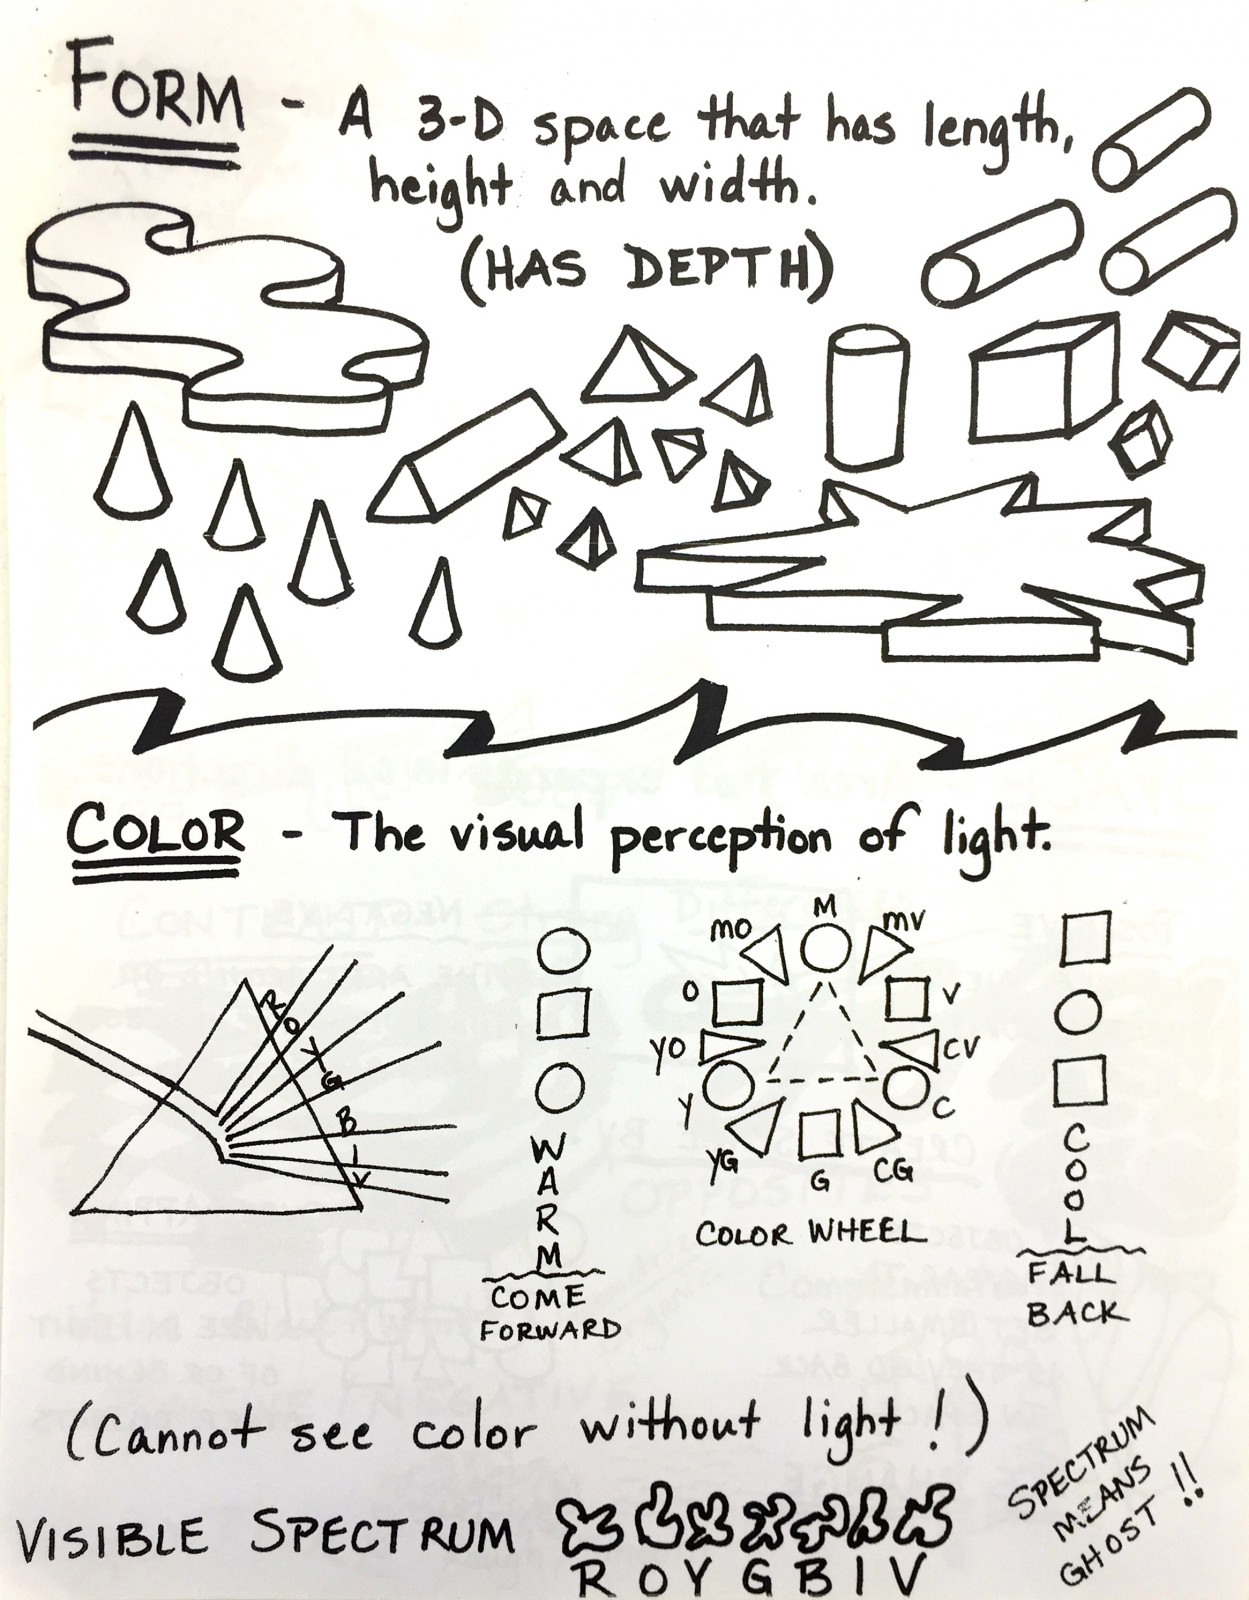 FORM - A 3-D space that has length,
height and width.
(HAS DEPTH)
COLOR - The visual perception of light.
R
O
Y
G
B
I
V
W
A
R
M
COME
FORWARD
M
MO
MV
O
V
YO
CV
Y
C
YG
G
CG
COLOR WHEEL
C
O
O
L
FALL
BACK
(Cannot see color without light!)
SPECTRUM
MEANS
GHOST!!
VISIBLE SPECTRUM
R O Y G B I V